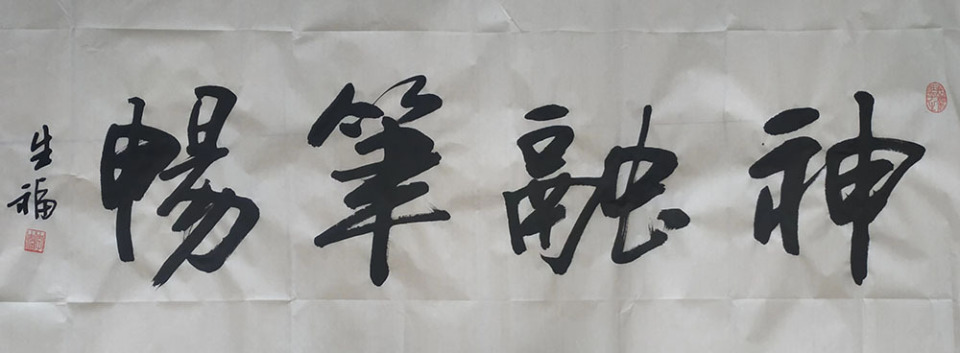 神融筆暢
生福